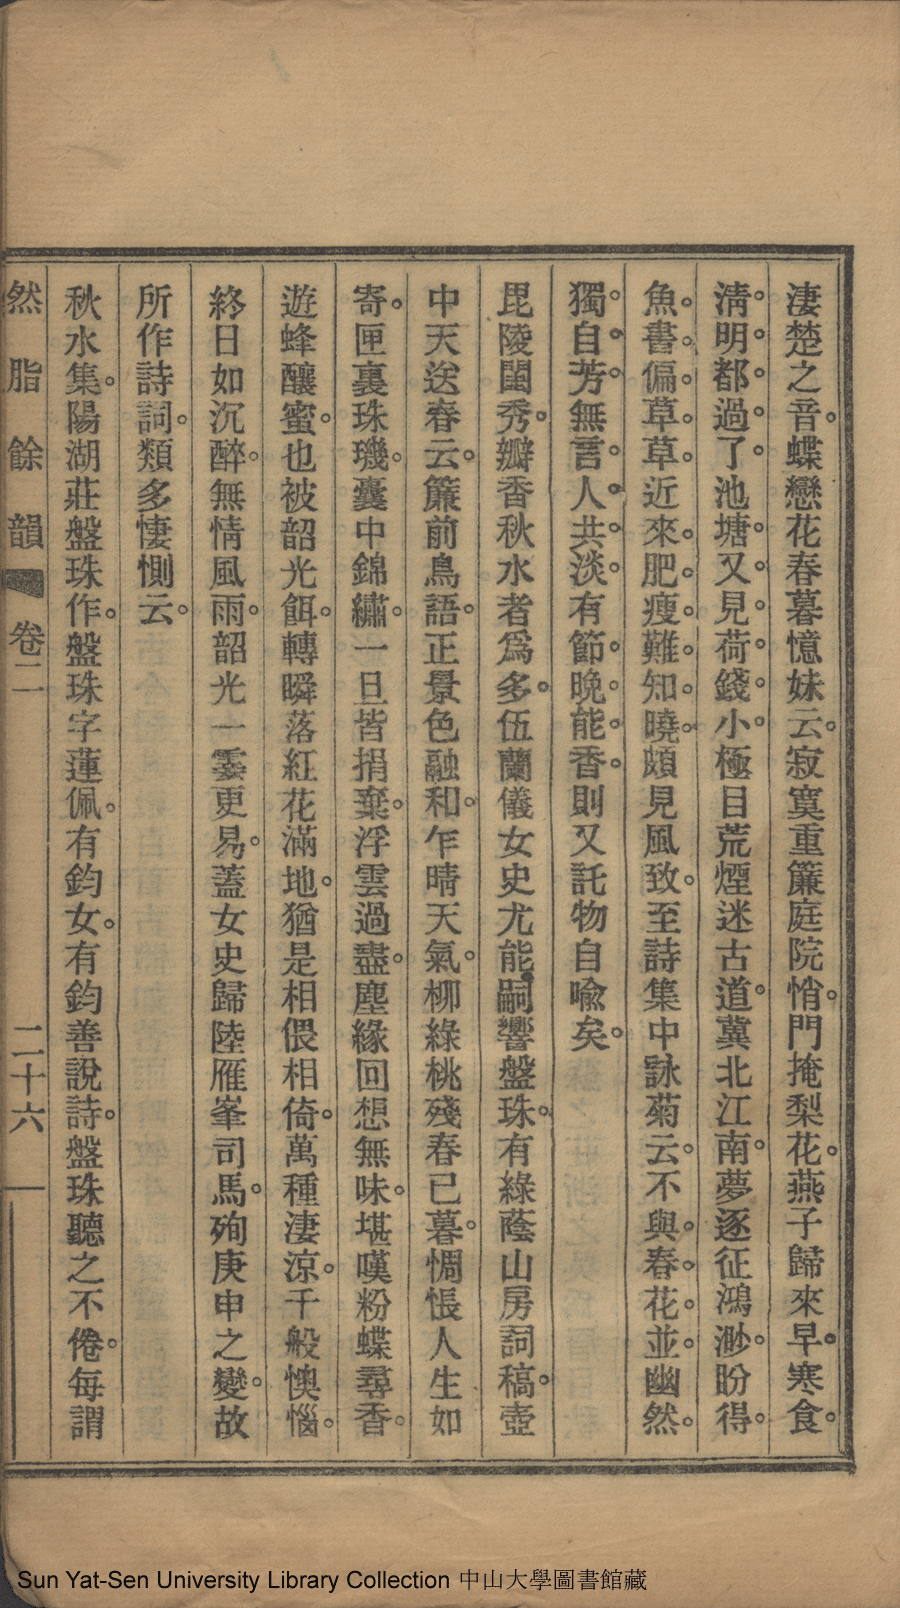 淒楚之音。蝶戀花春暮憶妹云。寂寞重簾庭院悄。門掩梨花。燕子歸來早。寒食。
淸。明。都。過。了。池塘。又。見。荷。錢。小。極目荒煙迷古道。冀北江南。夢逐征鴻渺。盼得。
魚。書。偏。草。草。近來。肥。瘦。難。知。曉。頗見風致。至詩集中詠菊云。不與。春。花。並。幽然。
獨。自。芳。無言。人。共。淡。有節。晚。能。香。則又託物自喩矣。
毘陵閨秀。瓣香秋水者爲多。伍蘭儀女史尤能嗣響盤珠。有綠蔭山房詞稿。壺
中天送春云。簾前鳥語。正景色融和。乍晴天氣。柳綠桃殘春已暮。惆悵人生如
寄。匣裏珠璣。囊中錦繡。一旦皆捐棄。浮雲過盡。塵緣回想無味。堪嘆粉蝶尋香。
遊蜂釀蜜。也被韶光餌。轉瞬落紅花滿地。猶是相偎相倚。萬種淒涼。千般懊惱。
終日如沉醉。無情風雨。韶光一霎更易。蓋女史歸陸雁峯司馬。殉庚申之變。故
所作詩詞。類多悽惻云。
秋水集。陽湖莊盤珠作。盤珠字蓮佩。有鈞女。有鈞善說詩。盤珠聽之不倦。每謂
然脂餘韻 卷二 二十六
Sun Yat-Sen University Library Collection 中山大學圖書館藏